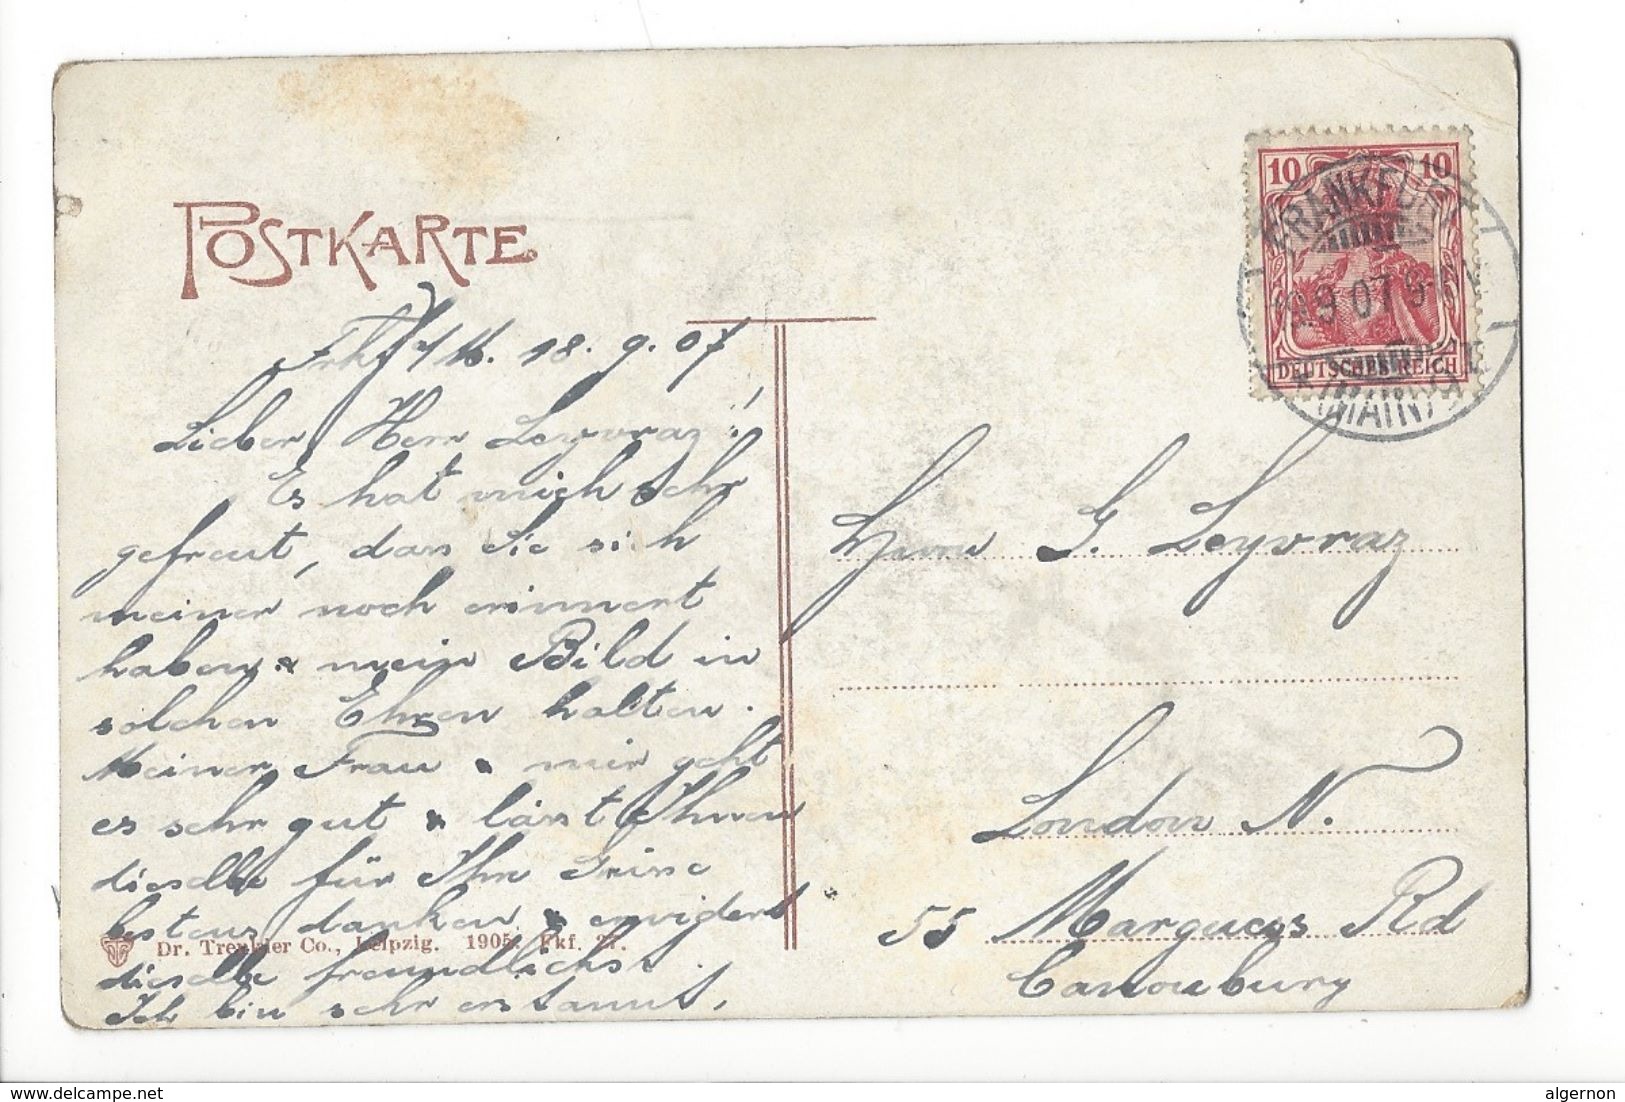 POSTKARTE
Frkf a/M. 18. 9. 07
Lieber Herr Leyvraz!
Es hat mich sehr
gefreut, dass Sie sich
meiner noch erinnert
haben & mein Bild in
solchen Ehren halten.
Meiner Frau & mir geht
es sehr gut & lässt Ihnen
dieselbe für Ihre Grüsse
bestens danken & erwidert
Dr. Trenkler Co., Leipzig. 1905. Fkf. 27.
dieselbe freundlichst.
Ich bin sehr erstaunt,
10 10
DEUTSCHES REICH
FRANKFURT
9 07
(MAIN)
Herrn G. Leyvraz
London N.
55 Marguess Rd
Canonbury
www.delcampe.net
algernon